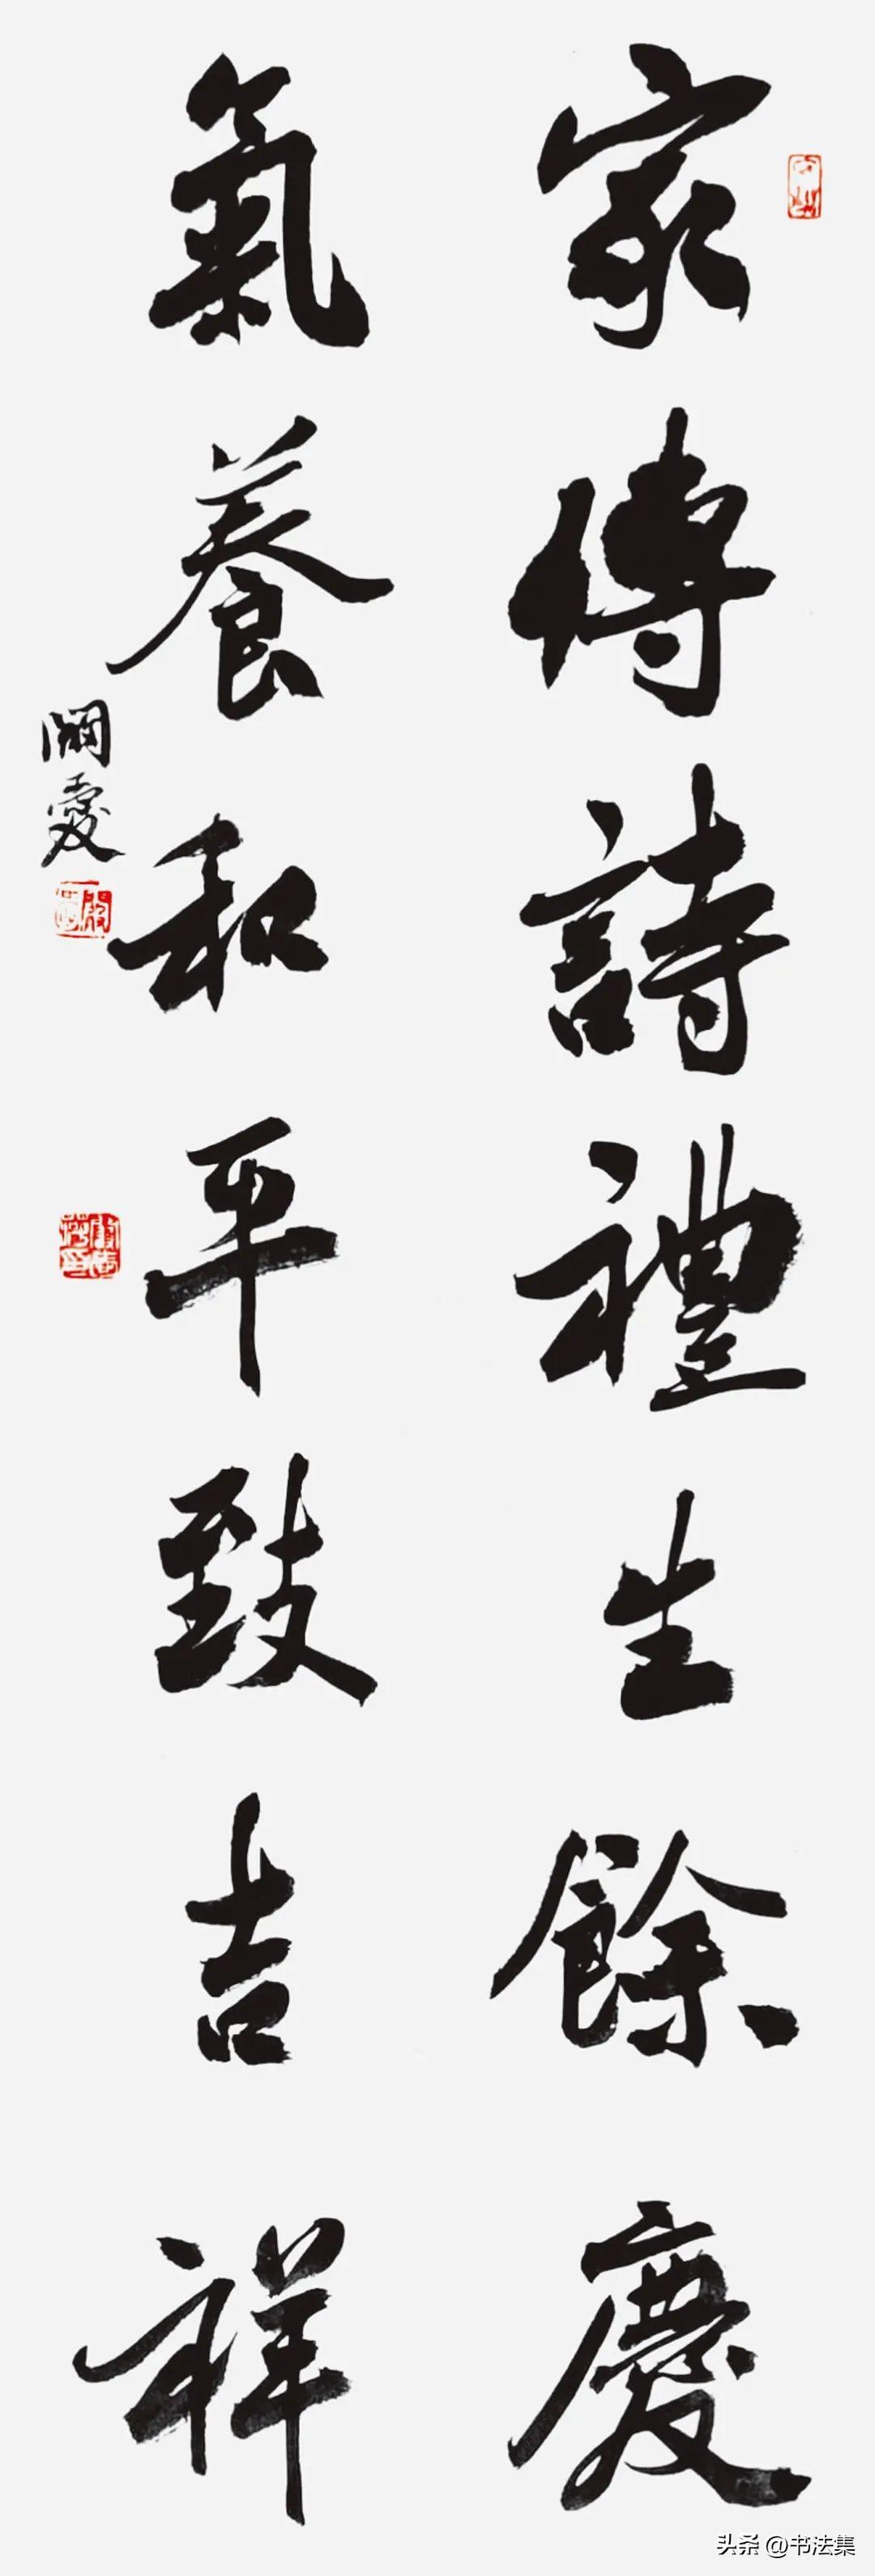 家傳詩禮生餘慶
氣養和平致吉祥
头条 @书法集